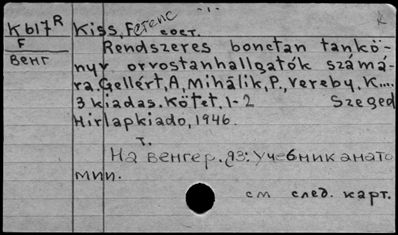 - 1 -
K617R Kiss, Ferenc сост.
F
Венг
Rendszeres bonctan tankö-
nyv orvostanhallgatók számá-
ra, Gellért, A, Mihálik, P., Vereby, K....
3 kiadas. Kötet. 1-2 Szeged
Hirlapkiadó, 1946.
т.
На венгер. яз: Учебник анато
мии.
см след. карт.